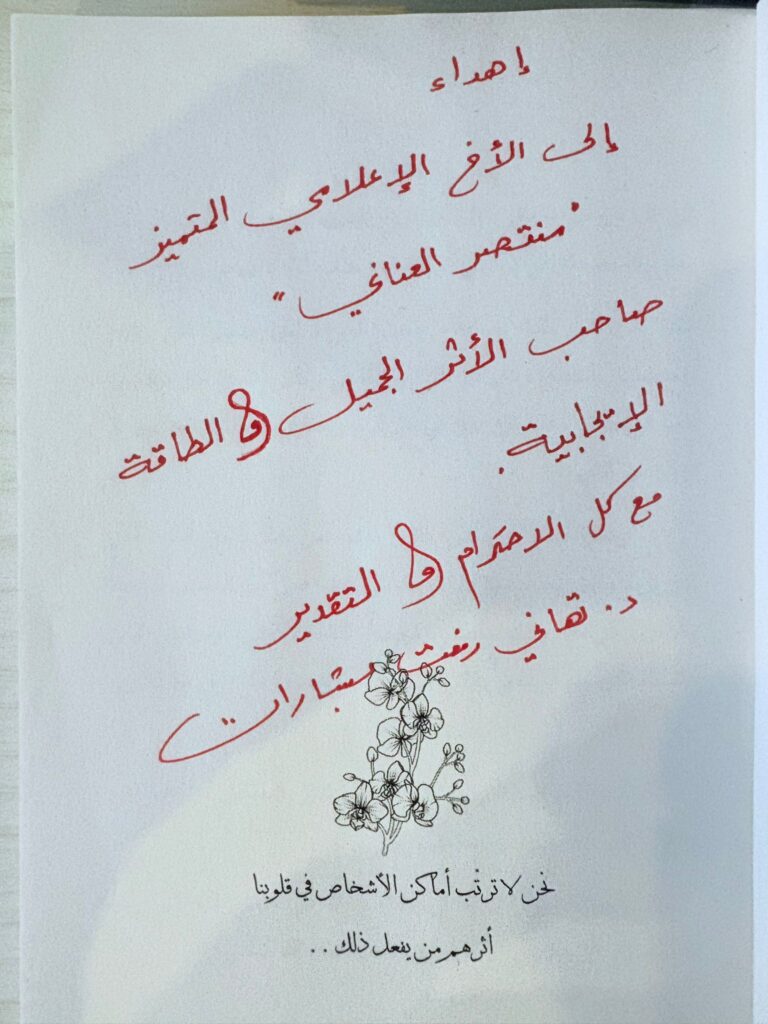 إهداء
إلى الأخ الإعلامي المتميز
"منتصر العناني"
صاحب الأثر الجميل و الطاقة
الإيجابية.
مع كل الاحترام و التقدير
د. تهاني رفعت بشارات
نحن لا نرتّب أماكن الأشخاص في قلوبنا
أثرهم من يفعل ذلك . .